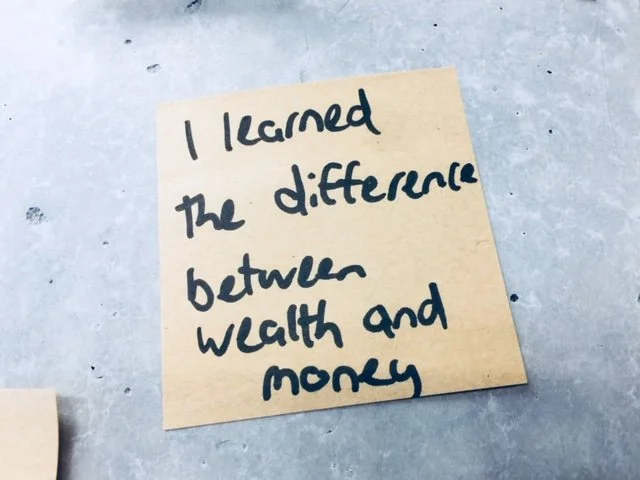 I learned
the difference
between
wealth and
money